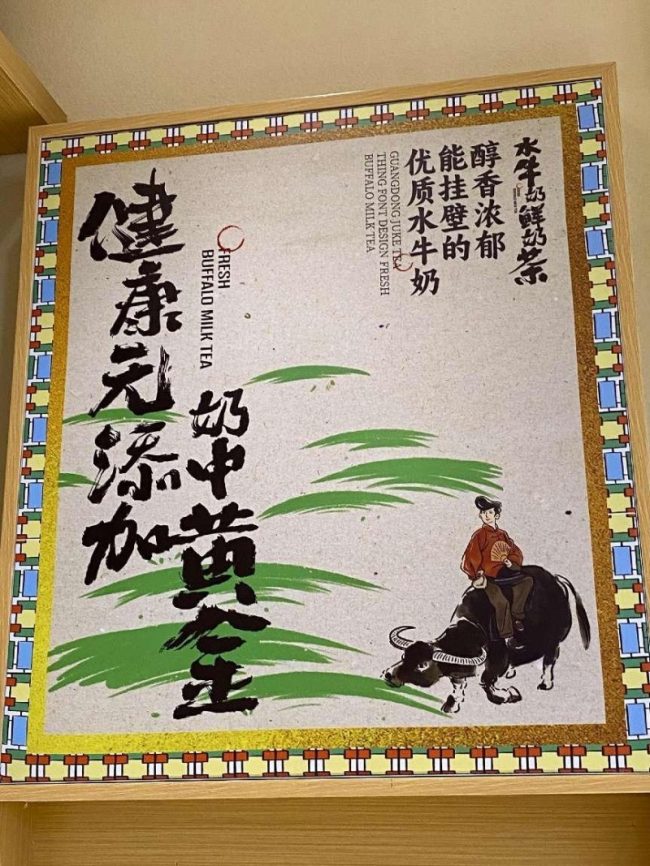 水牛奶鲜奶茶
醇香浓郁
能挂壁的
优质水牛奶
GUANGDONG JUKE TEA
THING FONT DESIGN FRESH
BUFFALO MILK TEA
健康无添加
FRESH
BUFFALO MILK TEA
奶中黄金